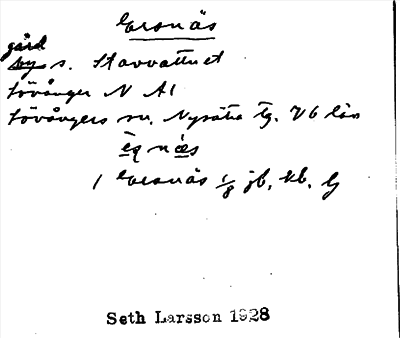 Ersnäs
gård
by s. Stavvattnet
Lövånger N A1
Lövångers sn. Nysätra tg. Vb län
èq näs
1 Ersnäs 1/8 jb, kb. G
Seth Larsson 1928